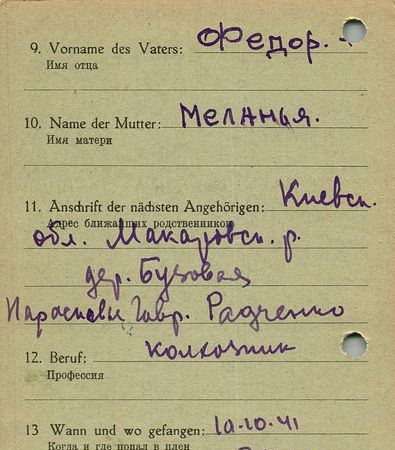 9. Vorname des Vaters: Федор.
Имя отца
10. Name der Mutter: Меланья.
Имя матери
11. Anschrift der nächsten Angehörigen: Киевск.
Адрес ближайших родственников
обл. Макаровск. р.
дер. Бузовая
Гавр. Радченко
12. Beruf: колхозник
Профессия
13 Wann und wo gefangen: 10.10.41
Когда и где попал в плен